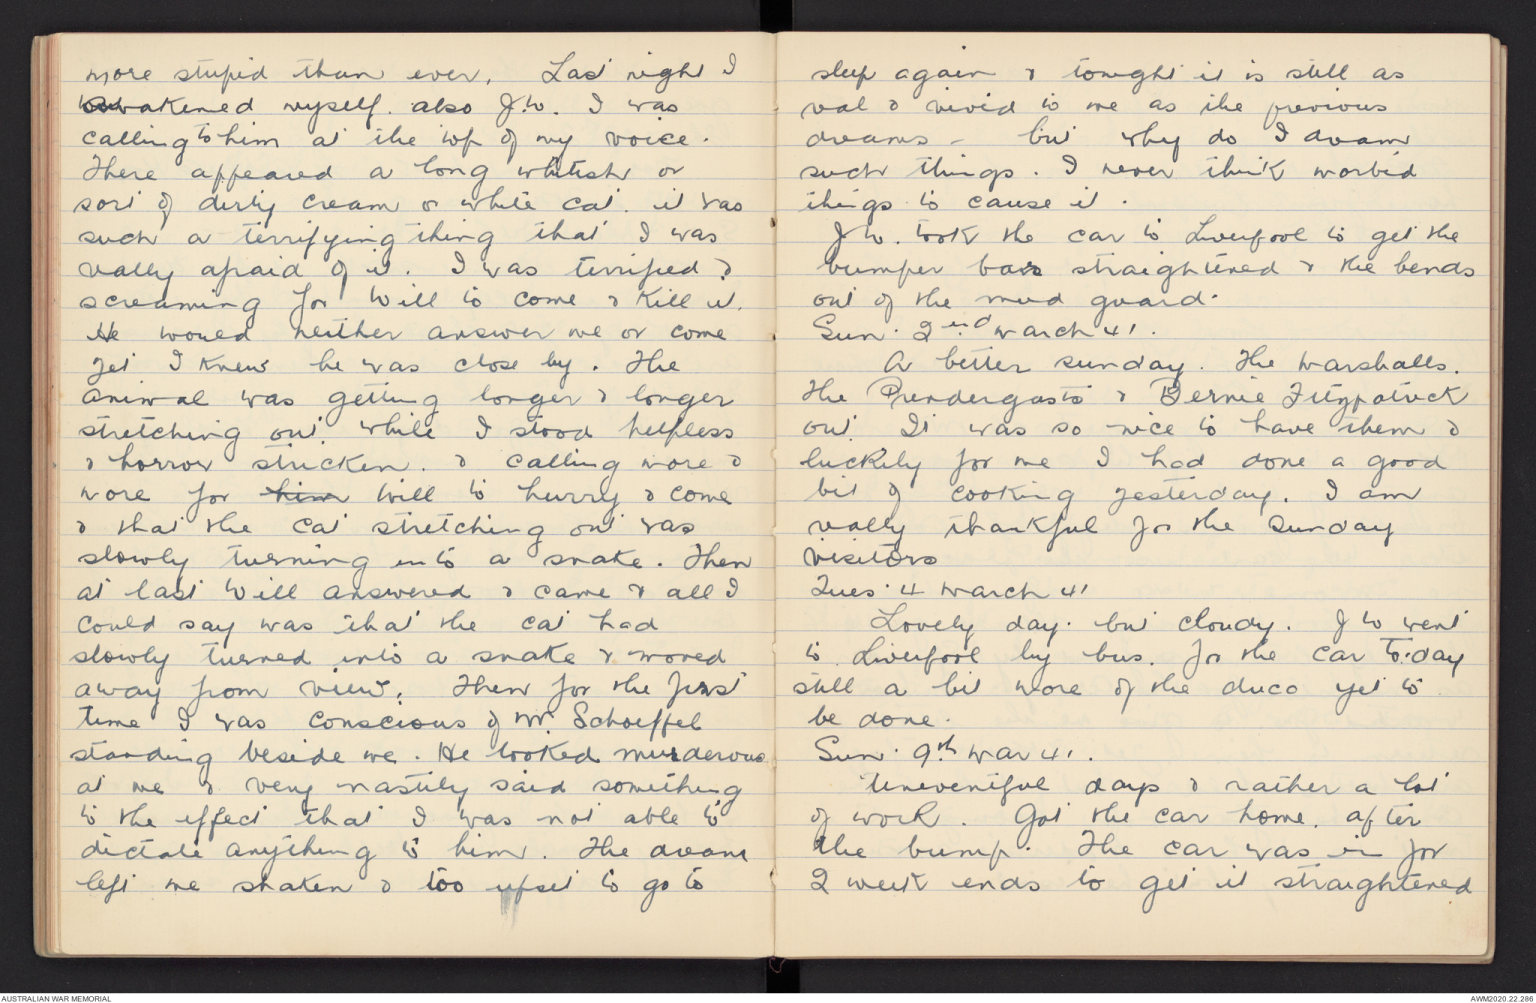 more stupid than ever. Last night I
awakened myself. also J.W. I was
calling to him at the top of my voice.
There appeared a long whitish or
sort of dirty cream or white cat. it was
such a terrifying thing that I was
really afraid of it. I was terrified &
screaming for Will to come & kill it.
He would neither answer me or come
yet I knew he was close by. The
animal was getting longer & longer
stretching out. while I stood helpless
& horror stricken. & calling more &
more for him Will to hurry & come
& that the cat stretching out was
slowly turning into a snake. Then
at last Will answered & came & all I
could say was that the cat had
slowly turned into a snake & moved
away from view. Then for the first
time I was conscious of Mr. Schoeffel
standing beside me. He looked murderous
at me & very nastily said something
to the effect that I was not able to
dictate anything to him. The dream
left me shaken & too upset to go to
sleep again & tonight it is still as
real & vivid to me as the previous
dreams - but why do I dream
such things. I never think morbid
things to cause it.
J W. took the car to Liverpool to get the
bumper bars straightened & the bends
out of the mud guard.
Sun. 2nd March 41.
A better Sunday. The Marshalls.
the Prendergasts & Bernie Fitzpatrick
out. It was so nice to have them &
luckily for me I had done a good
bit of cooking yesterday. I am
really thankful for the Sunday
visitors
Tues. 4 March 41
Lovely day. but cloudy. J W went
to Liverpool by bus. for the car to-day
still a bit more of the duco yet to
be done.
Sun. 9th Mar 41.
Uneventful days & rather a lot
of work. Got the car home. after
the bump. The car was in for
2 week ends to get it straightened
AUSTRALIAN WAR MEMORIAL
AWM2020.22.286